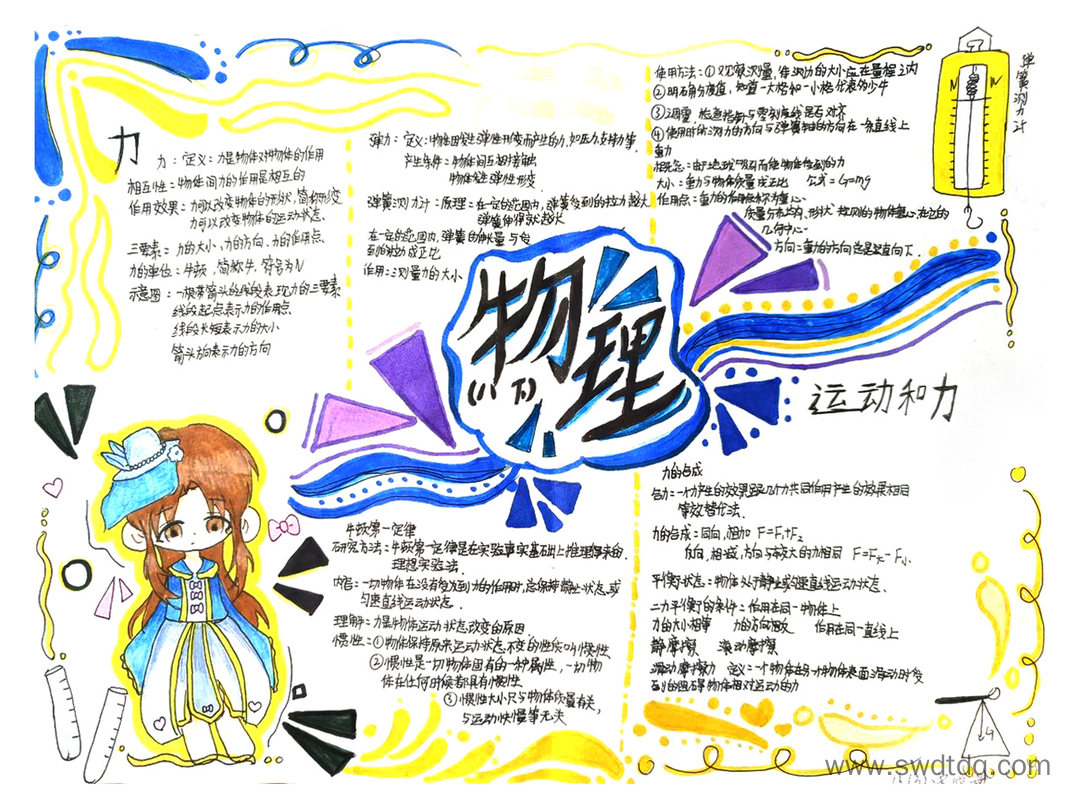 力
力：定义：力是物体对物体的作用
相互性：物体间力的作用是相互的
作用效果：力可以改变物体的形状，简称形变
力可以改变物体的运动状态.
三要素：力的大小、力的方向、力的作用点.
力的单位：牛顿，简称牛．符号为N
示意图：一根带箭头的线段表示力的三要素
线段起点表示力的作用点.
线段长短表示力的大小
箭头方向表示力的方向
弹力：定义：物体因发生弹性形变而产生的力，如压力，支持力等.
产生条件：物体间互相接触
物体发生弹性形变.
弹簧测力计：原理：在一定的范围内，弹簧受到的拉力越大
弹簧伸得就越长
在一定的范围内，弹簧的伸长量与受
到的拉力成正比
作用：测量力的大小
使用方法：①观察测量，使测力的大小应在量程之内
②明确分度值，知道一大格和一小格代表多少牛
③调零，检查指针与零刻度线是否对齐
④使用时所测力的方向与弹簧轴的方向在一条直线上
重力
概念：由于地球吸引而使物体受到的力
大小：重力与物体质量成正比 公式=G=mg
作用点：重力的作用点称为重心.
质量分布均匀、形状规则的物体重心在它的
几何中心.
方向：重力的方向总是竖直向下.
弹簧测力计
N N
物理
(八下)
运动和力
牛顿第一定律
研究方法：牛顿第一定律是在实验事实基础上推理得来的.
理想实验法.
内容：一切物体在没有受到力的作用时，总保持静止状态.或
匀速直线运动状态.
理解：力是物体运动状态改变的原因.
惯性：①物体保持原来运动状态不变的性质叫惯性
②惯性是一切物体固有的一种属性，一切物
体在任何时候都具有惯性
③惯性大小只与物体质量有关，
与运动快慢等无关
力的合成
合力：一个力产生的效果跟几个力共同作用产生的效果相同
等效替代法.
力的合成：同向，相加 F=F₁+F₂
反向，相减，方向与较大的力相同 F=F大-F小
平衡状态：物体处于静止或匀速直线运动状态.
二力平衡的条件：作用在同一物体上
力的大小相等 力的方向相反 作用在同一直线上
静摩擦 滚动摩擦
滑动摩擦力 定义：一个物体在另一个物体表面滑动时受
到的阻碍物体相对运动的力
www.swdtdq.com